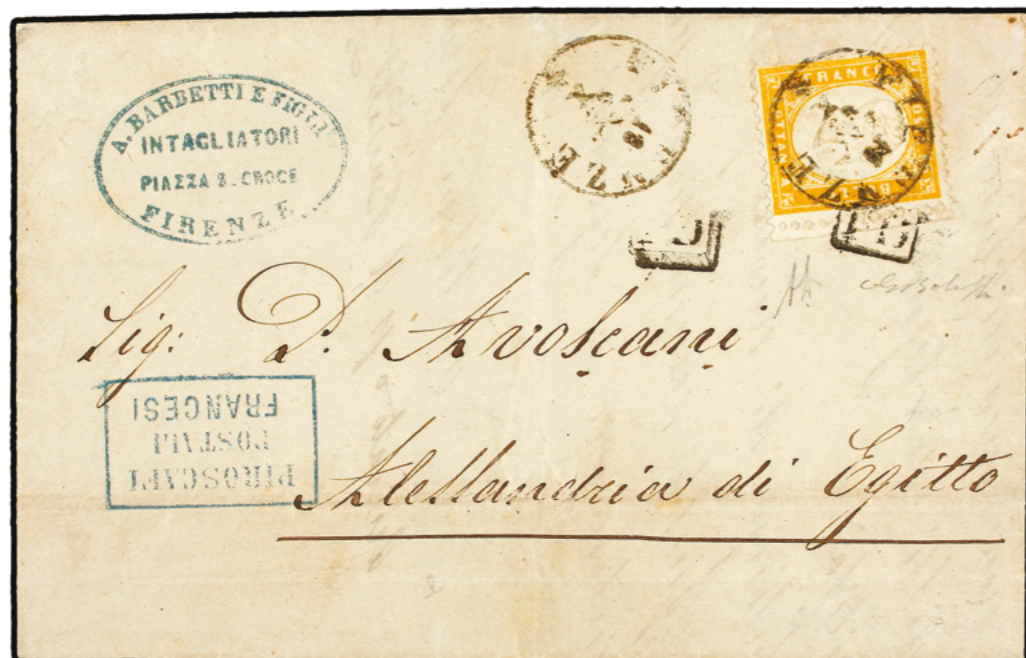 A. BARBETTI E FIGLI
INTAGLIATORI
PIAZZA S. CROCE
FIRENZE
FIRENZE
FRANCO
FIRENZE
BOLLO
PD
PD
Sig: D. Avoscani
PIROSCAFI
POSTALI
FRANCESI
Alessandria di Egitto